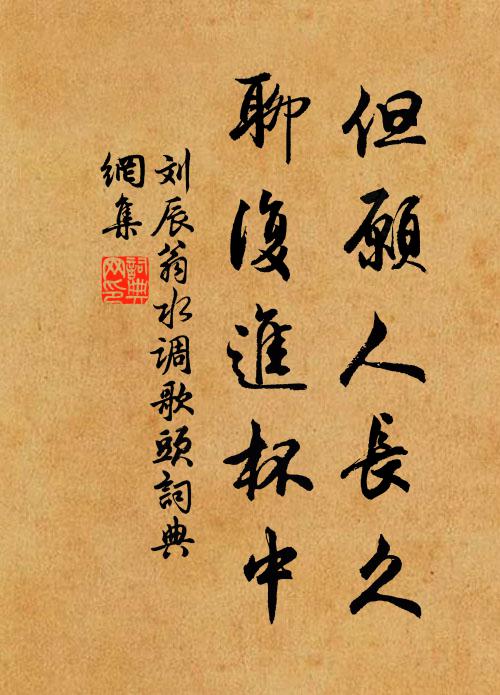 但願人長久
聊復進杯中
刘辰翁水调歌頭詞典
網集
詞典网印